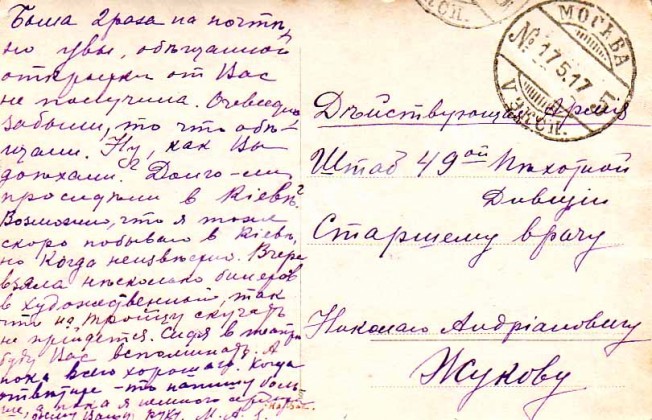 Была 2 раза на почтѣ,
но увы, обѣщанной
открытки от Вас
не получила. Очевидно
забыли, то что обѣ-
щали. Ну, как Вы
доѣхали. Долго-ли
просидѣли в Кіевѣ?
Возможно, что я тоже
скоро побываю в Кіевѣ,
но когда неизвѣстно. Вчера
взяла нѣсколько билетов
в художественный, так
что на Троицу скучать
не прийдется. Сидя в театрѣ
буду Вас вспоминать. А
пока всего хорошаго. Когда
отвѣтите - то напишу боль-
ше, а пока я немного
Вашу руку. М. А.
МОСКВА
№ 17.5.17
ЭКСП.
Дѣйствующая Армія
Штаб 49ой Пѣхотной
Дивизіи
Старшему врачу
Николаю Андріановичу
Жукову